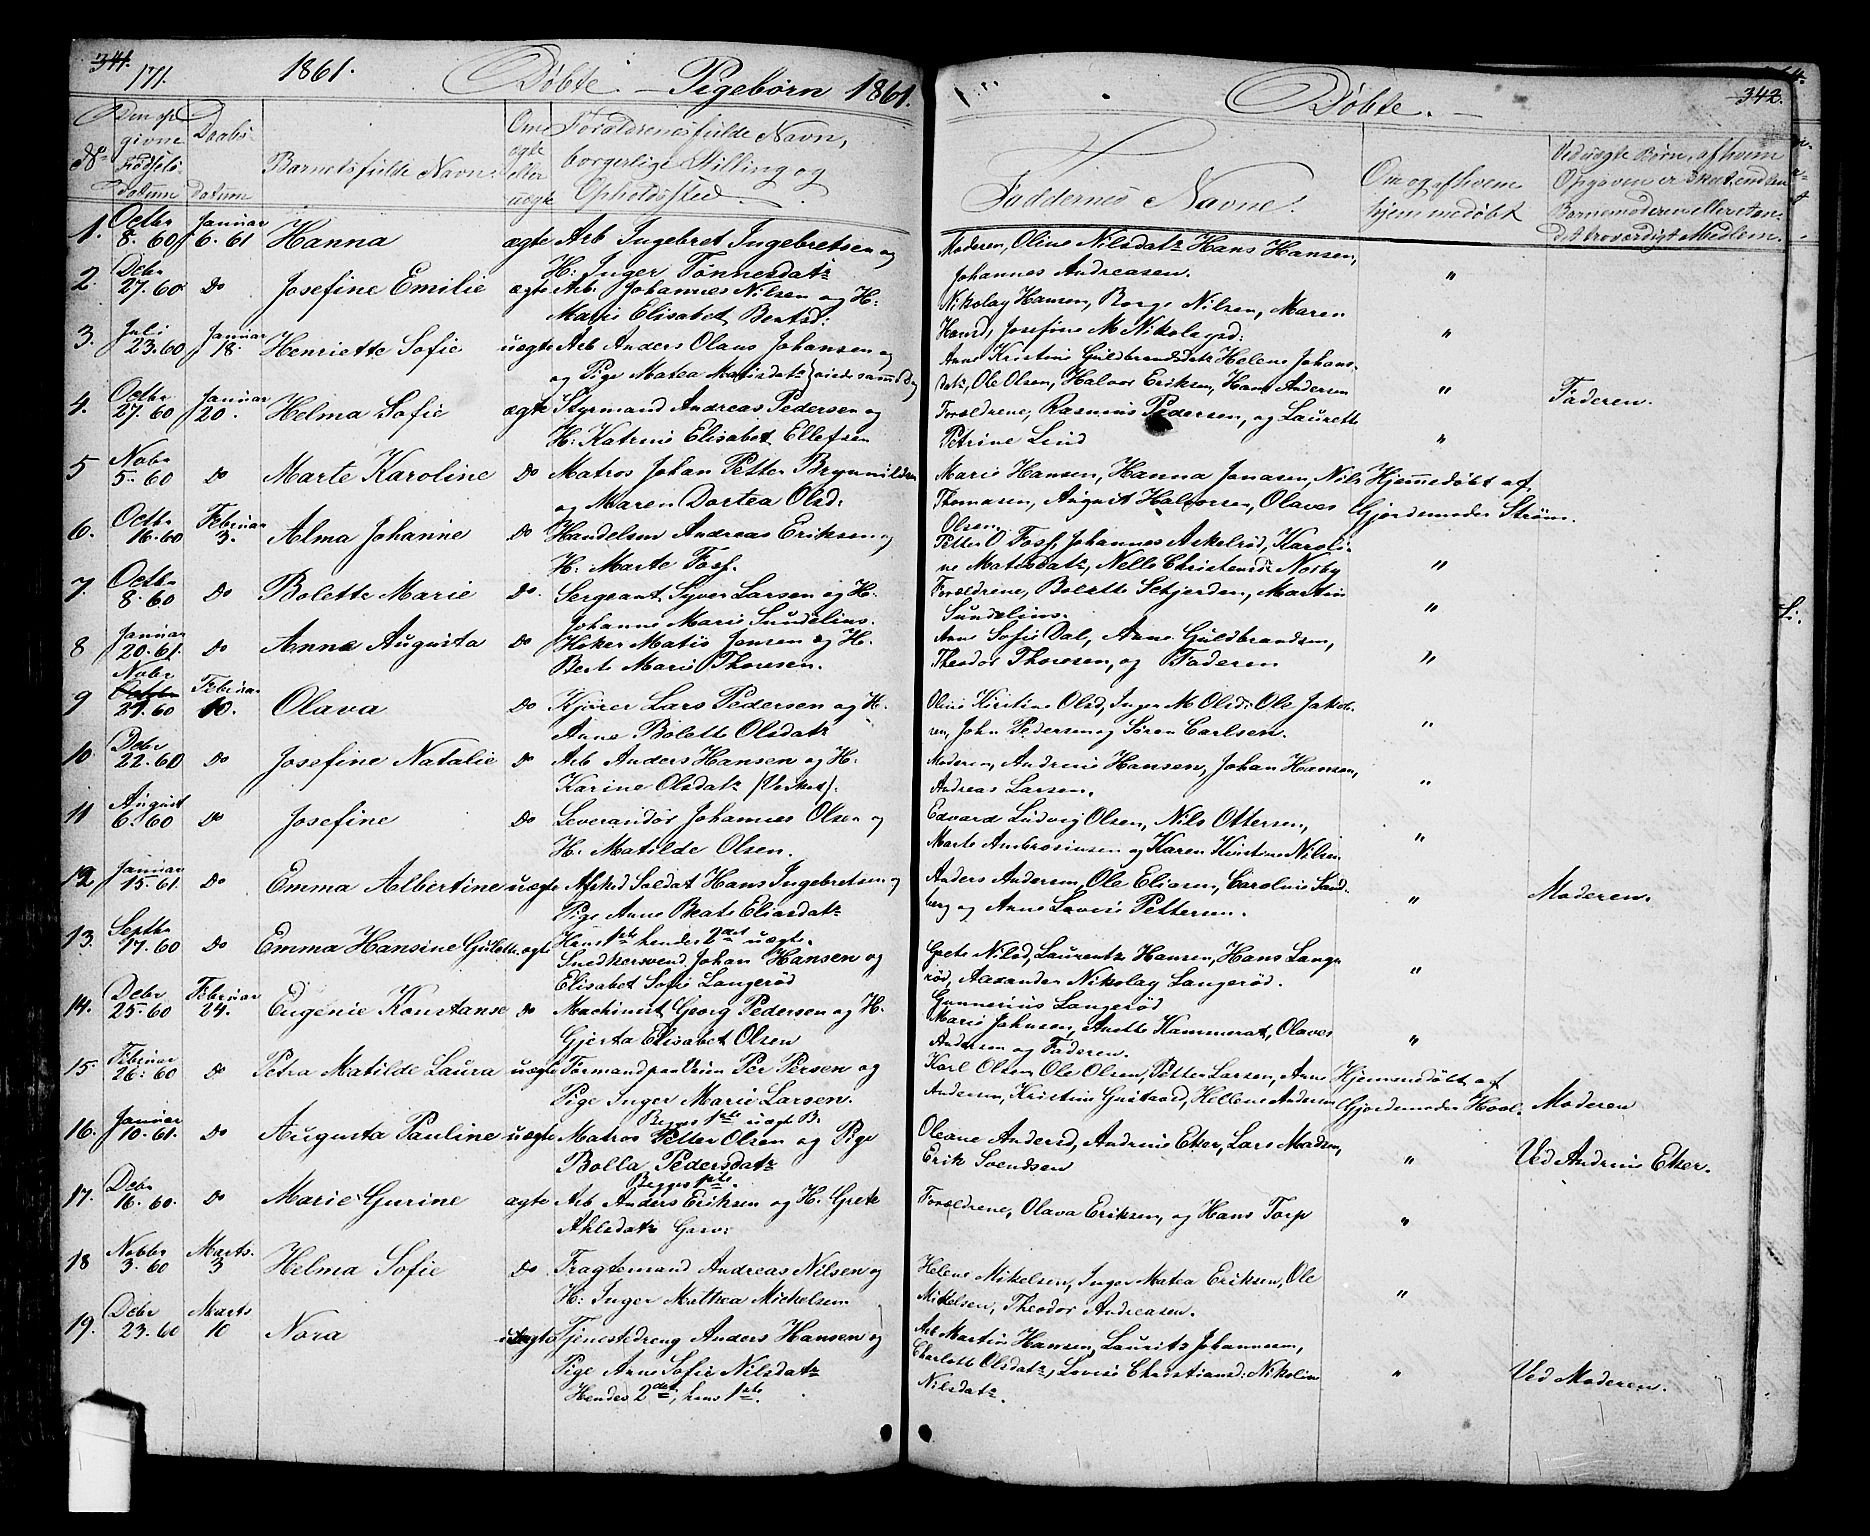 341.
171.
1861.
Døbte. — Pigebørn 1861.
No
Den op-
givne
Fødsels-
datum
Daabs-
datum
Barnets fulde Navn.
Om
ægte
eller
uægte
Forældrenes fulde Navn,
borgerlige Stilling og
Opholdssted.
1. Octbr 8. 60 Januar 6. 61 Hanna ægte Arb Ingebret Ingebretsen og
H: Inger Tønnesdatr
2. Debr 27. 60 Do Josefine Emilie ægte Arb. Johannes Nilsen og H:
Marie Elisabet Bentsd:
3. Juli 23. 60 Januar 18. Henriette Sofie uægte Arb Anders Olaus Johansen og
og Pige Matea Matisdatr
4. Octbr 27. 60 Januar 20. Helma Sofie ægte Styrmand Andreas Pedersen og
H: Katrine Elisabet Ellefsen
5 Nobr 5. 60 Do Marte Karoline Do Matros Johan Petter Brynnildsen
og Maren Dortea Olsd:
6. Octbr 16. 60 Februar 3. Alma Johanne Do Handelsm Andreas Eriksen og
H: Marte Foss.
7. Octbr 8. 60 Do Bolette Marie Do. Sergeant Syver Larsen og H.
Johanne Marie Sundelius.
8 Januar 20. 61. Do Anna Augusta Do Høker Matis Jensen og H.
Berte Marie Thoresen.
9 Nobr 21. 60 Februar 10. Olava Do Kjører Lars Pedersen og H.
Anne Bolette Olsdatr
10 Debr 22. 60 Do Josefine Natalie Do Arb Anders Hansen og H.
Karine Olsdatr (Verket).
11 August 6. 60 Do Josefine Do Leverandør Johannes Olsen og
H. Matilde Olsen.
12 Januar 15. 61. Do Emma Albertine uægte Afsked Soldat Hans Ingebretsen og
Pige Anne Beate Eliasdatr
Hans 1ste hendes 2det uægte.
13. Septbr 17. 60 Do Emma Hansine ægte Snedkersvend Johan Hansen og
Elisabet Sofie Langerød
14. Debr 25. 60 Februar 24. Eugenie Konstanse Do Machinist Georg Pedersen og H.
Gjerta Elisabet Olsen
15. Februar 26. 60 Do Petra Matilde Laura uægte Formand Per Persen og
Pige Inger Marie Larsen.
Begges 1ste uægte B.
16. Januar 10. 61. Do Augusta Pauline uægte Matros Petter Olsen og Pige
Bolla Pedersdatr
Begges 1ste.
17. Debr 16. 60. Do Marie Gurine ægte Arb Anders Eriksen og H. Grete
18 Nobbr 3. 60 Marts. 3 Helma Sofie Do. Fragtemand Andreas Nilsen og
H: Inger Mathea Mickelsen
19. Debr 23. 60 Marts 10 Nora uægte Tjenestedreng Anders Hansen og
Pige Anne Sofie Nilsdatr
Hendes 2det, hans 1ste.
342.
Døbte. —
Faddernes Navne.
Om og af hvem
hjemmedøbt
Ved uægte Børn, af hvem
Opgaven er skeet, enten
Barnemoderen eller et an-
det troværdigt Medlem.
Moderen, Oline Nilsdatr Hans Hansen,
Johannes Andreasen. "
Nikolay Hansen, Borge Nilsen, Maren
Hansd, Josefine M Nikolaysd: "
Anne Kristine Guldbrandsdatr Helene Johans-
datr, Ole Olsen, Halvor Eriksen, Hans Andersen " Faderen.
Forældrene, Rasmus Pedersen, og Laurette
Petrine Lind "
Marie Hansen, Hanna Jonasen, Nils Hjemmedøbt af
Thomasen, August Halvorsen, Olaves Gjordemoder Strøm.
Olsen.
Petter O Foss, Johannes Askelrød, Karoli-
ne Matisdatr, Nelle Christensd: Norby "
Forældrene, Bolette Schjerden, Martin
Sundelius. "
Ane Sofie Dal, Anne Guldbrandsen,
Theodor Thoresen, og Faderen "
Oline Kirstine Olsd, Inger M Olsd: Ole Jakob-
sen, John Pedersen og Søren Carlsen. "
Moderen, Andrine Hansen, Johan Hansen,
Andreas Larsen. "
Edvard Ludvig Olsen, Nils Ottersen,
Marte Ambrosiusen og Karen Kirstine Nilsen "
Anders Andersen, Ole Eliasen, Caroline Sand-
berg og Anne Lovise Pettersen. " Moderen.
Grete Nilsd, Laurentze Hansen, Hans Lange-
rød, Alexander Nikolay Langerød. "
Gunnerius Langerød
Marie Johnsen, Anette Kammerat, Olaves
Andersen og Faderen. "
Karl Olsen, Ole Olsen, Petter Larsen, Anne Hjemmedøbt af
Andersen, Kristine Gustavsd, Hellene Andersen Gjordemoder Hool. Moderen
Oleane Andersd, Andrine Eker, Lars Madsen,
Erik Svendsen " Ved Andrine Eker.
Forældrene, Olava Eriksen, og Hans Torp "
Helene Mikelsen, Inger Matea Eriksen, Ole
Mikelsen, Theodor Andreasen. "
Arb Martin Hansen, Lauritz Johannesen,
Charlotte Olsdatr, Lovise Christiansd: Nikoline
Nilsdatr. " Ved Moderen.